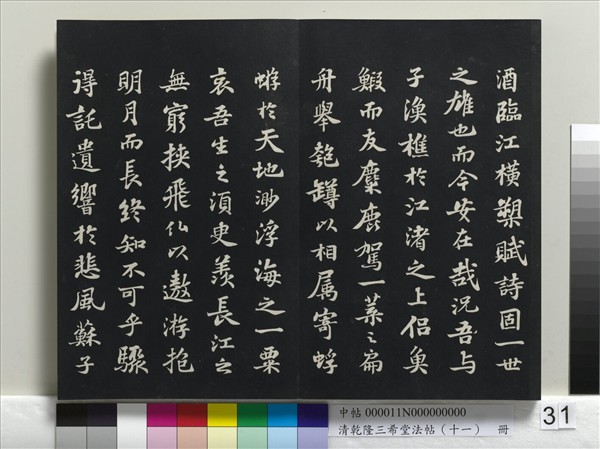 酒臨江橫槊賦詩固一世
之雄也而今安在哉況吾與
子漁樵於江渚之上侶魚
鰕而友麋鹿駕一葉之扁
舟舉匏罇以相属寄蜉
蝣於天地渺浮海之一粟
哀吾生之須臾羨長江之
無窮挾飛仙以遨游抱
明月而長終知不可乎驟
得託遺響於悲風蘇子
中帖 000011N000000000
清乾隆三希堂法帖（十一） 冊
31